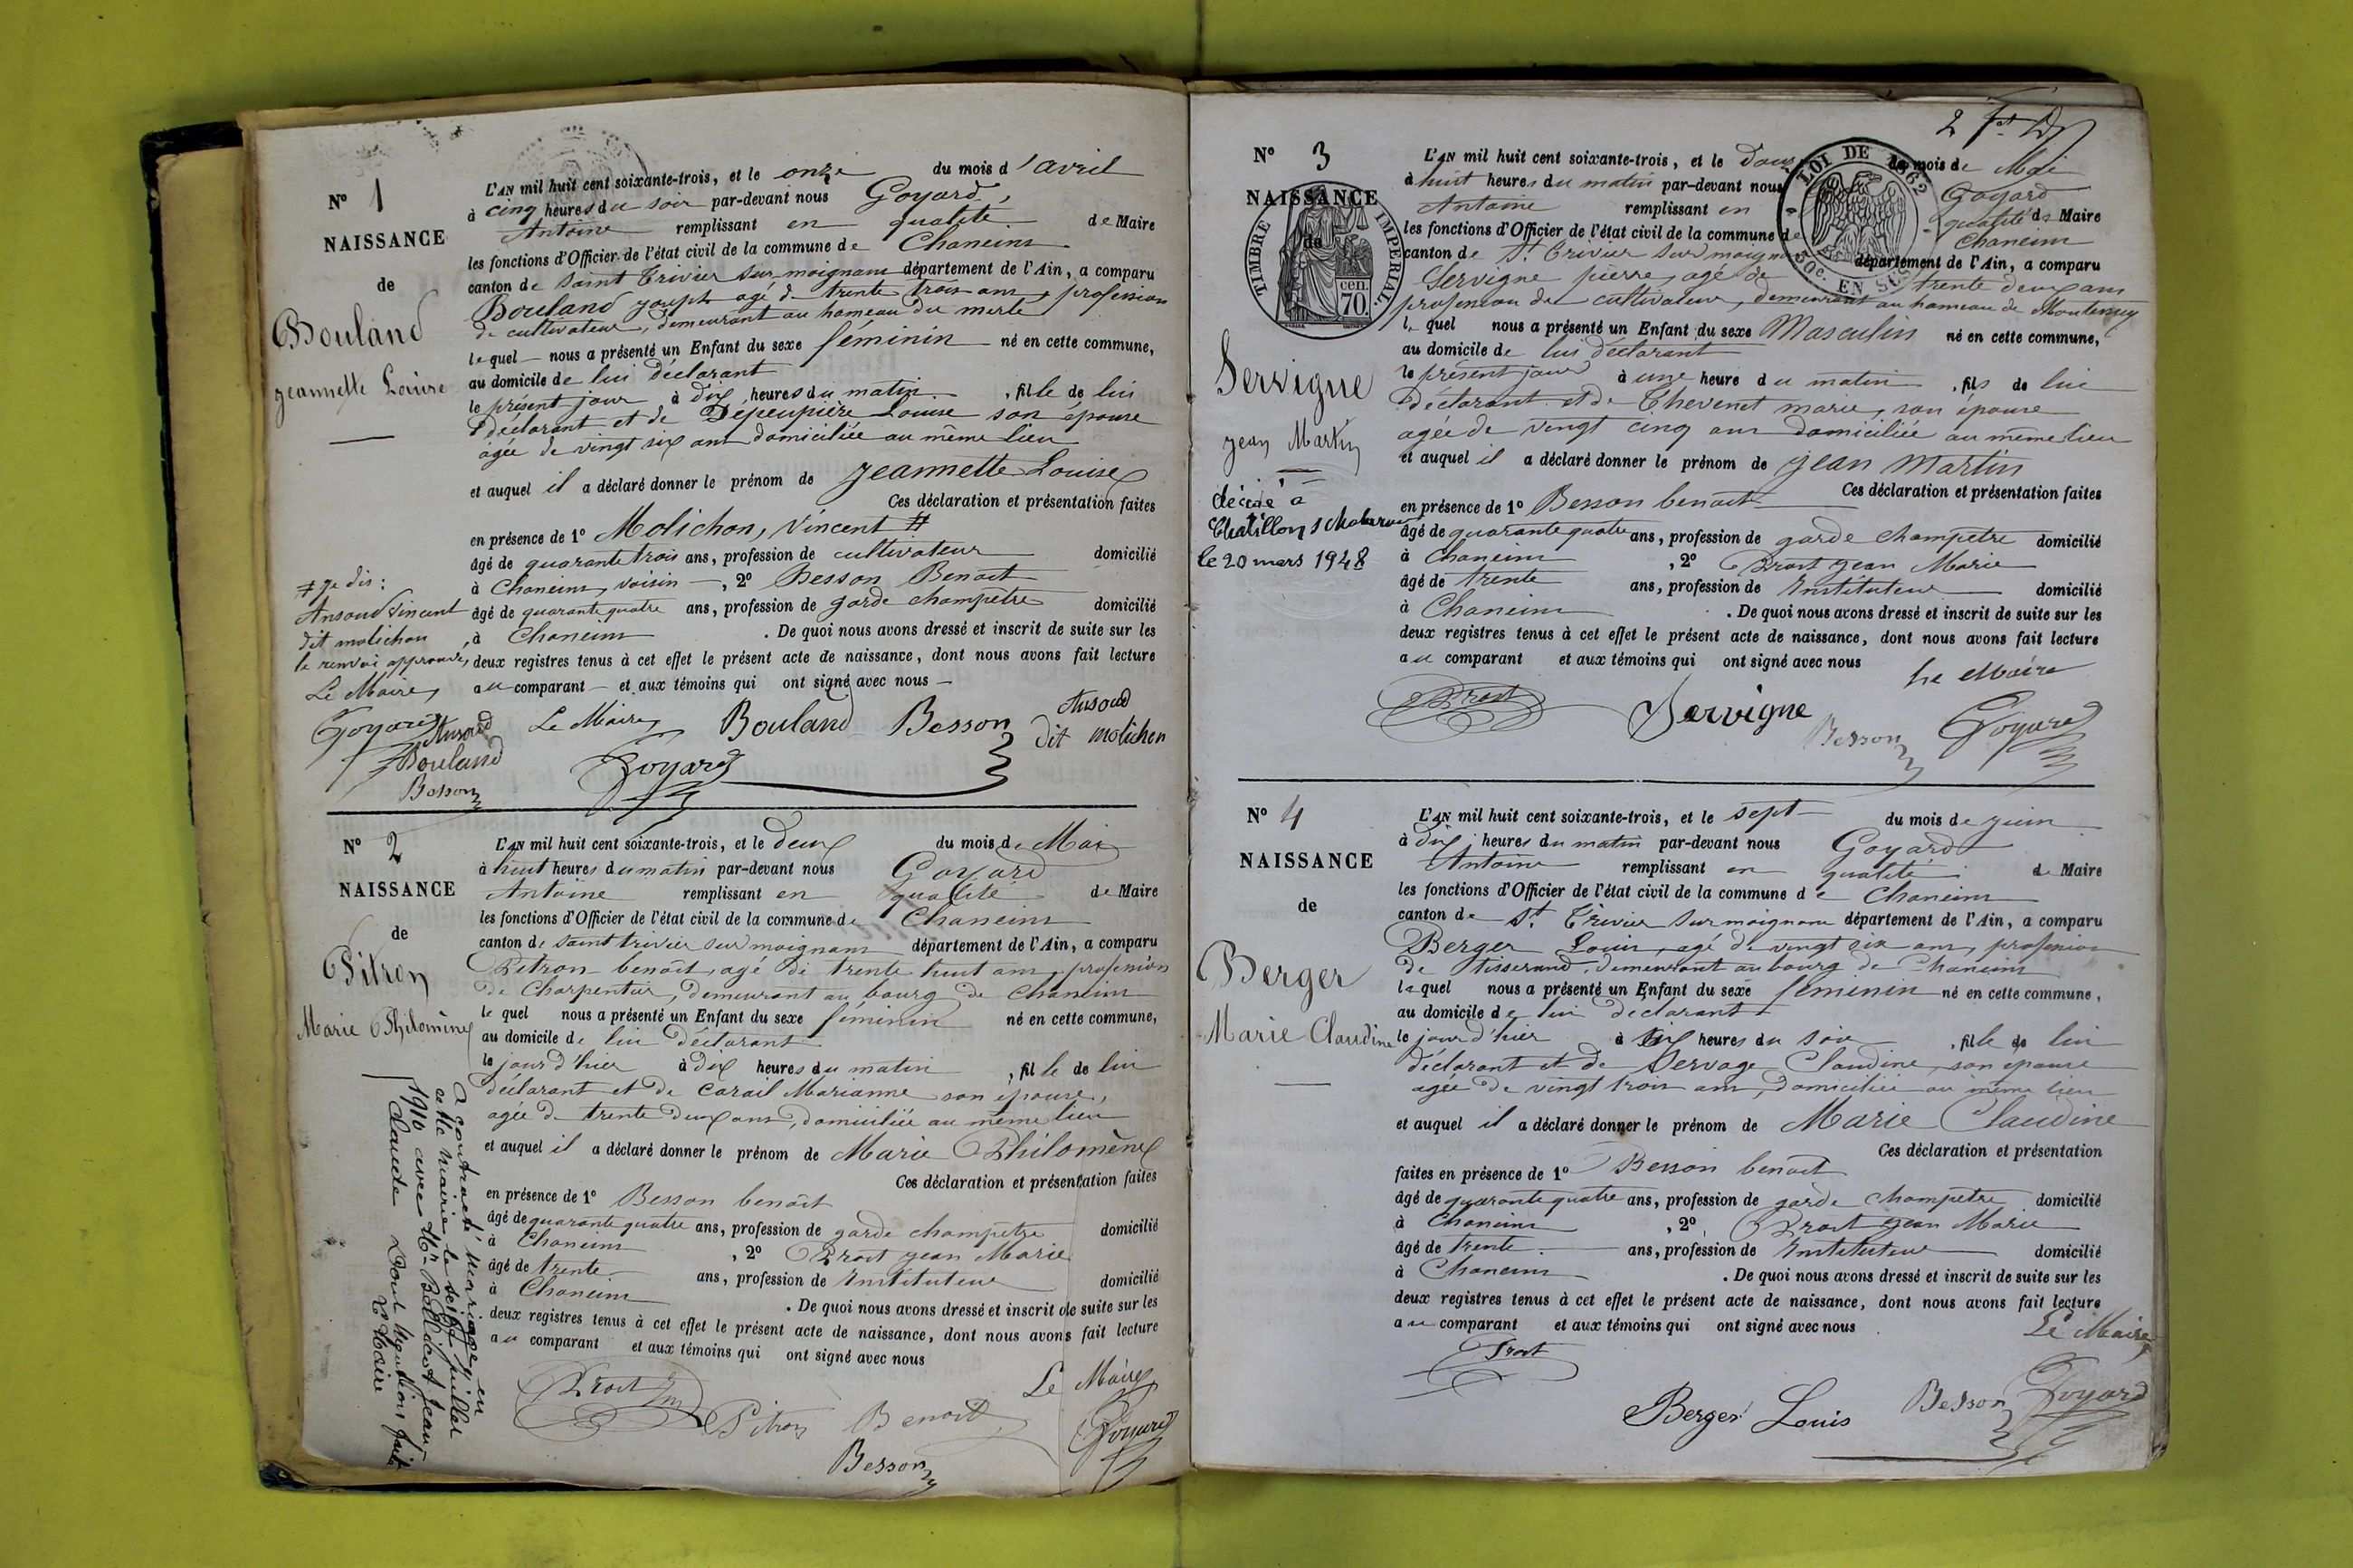 N° 1
NAISSANCE
de
Bouland
jeannette Louise
L'AN mil huit cent soixante-trois, et le onze du mois d'avril
à cinq heures du soir par-devant nous Goyard,
Antoine remplissant en qualité de Maire
les fonctions d'Officier de l'état civil de la commune de Chaneins
canton de Saint Trivier sur moignans département de l'Ain, a comparu
Bouland joseph agé de trente trois ans, profession
de cultivateur, demeurant au hameau du merle
lequel nous a présenté un Enfant du sexe féminin né en cette commune,
au domicile de lui déclarant
le présent jour à dix heures du matin, fille de lui
déclarant et de Dépeupière Louise son épouse
agée de vingt six ans domiciliée au même lieu
et auquel il a déclaré donner le prénom de jeannette Louise
Ces déclaration et présentation faites
en présence de 1° Molichon, Vincent #
âgé de quarante trois ans, profession de cultivateur domicilié
à Chaneins, voisin, 2° Besson Benoit
âgé de quarante quatre ans, profession de garde champêtre domicilié
à Chaneins. De quoi nous avons dressé et inscrit de suite sur les
deux registres tenus à cet effet le présent acte de naissance, dont nous avons fait lecture
au comparant et aux témoins qui ont signé avec nous
# je dis:
Ansoud Vincent
dit molichon
le renvoi approuvé
Le Maire,
Goyard Ansoud
Bouland
Besson
Le Maire Bouland Besson Ansoud
dit molichon
Goyard
N° 2
NAISSANCE
de
Pitron
Marie Philomène
L'AN mil huit cent soixante-trois, et le deux du mois de Mai
à huit heures du matin par-devant nous Goyard
Antoine remplissant en qualité de Maire
les fonctions d'Officier de l'état civil de la commune de Chaneins
canton de saint trivier sur moignans département de l'Ain, a comparu
Pitron benoit, agé de trente huit ans, profession
de Charpentier, demeurant au bourg de Chaneins
lequel nous a présenté un Enfant du sexe féminin né en cette commune,
au domicile de lui déclarant
le jour d'hier à dix heures du matin, fille de lui
déclarant et de Carail Marianne son épouse,
agée de trente deux ans, domiciliée au même lieu
et auquel il a déclaré donner le prénom de Marie Philomène
Ces déclaration et présentation faites
en présence de 1° Besson benoit
âgé de quarante quatre ans, profession de garde champetre domicilié
à Chaneins, 2° Prost jean Marie
âgé de trente ans, profession de Instituteur domicilié
à Chaneins. De quoi nous avons dressé et inscrit de suite sur les
deux registres tenus à cet effet le présent acte de naissance, dont nous avons fait lecture
au comparant et aux témoins qui ont signé avec nous
A contracté mariage en
cette mairie le seize juillet
1910 avec Mr Jean
Claude Dont Mention faite
Le Maire
Prost Pitron Benoit Le Maire
Besson Goyard
2
N° 3
NAISSANCE
de
TIMBRE IMPERIAL
cen. 70.
Servigne
jean Martin
décédé à
Chatillon s
le 20 mars 1948
LOI DE 1862
50c. EN SUS
L'AN mil huit cent soixante-trois, et le douze du mois de Mai
à huit heures du matin par-devant nous Goyard
Antoine remplissant en qualité de Maire
les fonctions d'Officier de l'état civil de la commune de Chaneins
canton de St. Trivier sur moignans département de l'Ain, a comparu
Servigne pierre, agé de trente deux ans
profession de cultivateur, demeurant au hameau de
lequel nous a présenté un Enfant du sexe Masculin né en cette commune,
au domicile de lui déclarant
le présent jour à une heure du matin, fils de lui
déclarant et de Thevenet marie, son épouse
agée de vingt cinq ans domiciliée au même lieu
et auquel il a déclaré donner le prénom de jean Martin
Ces déclaration et présentation faites
en présence de 1° Besson benoit
âgé de quarante quatre ans, profession de garde Champetre domicilié
à Chaneins, 2° Prost jean Marie
âgé de trente ans, profession de Instituteur domicilié
à Chaneins. De quoi nous avons dressé et inscrit de suite sur les
deux registres tenus à cet effet le présent acte de naissance, dont nous avons fait lecture
au comparant et aux témoins qui ont signé avec nous
Le Maire
Prost Servigne Besson Goyard
N° 4
NAISSANCE
de
Berger
Marie Claudine
L'AN mil huit cent soixante-trois, et le sept du mois de juin
à dix heures du matin par-devant nous Goyard
Antoine remplissant en qualité de Maire
les fonctions d'Officier de l'état civil de la commune de Chaneins
canton de St. Trivier sur moignans département de l'Ain, a comparu
Berger Louis, agé de vingt six ans, profession
de tisserand, demeurant au bourg de Chaneins
lequel nous a présenté un Enfant du sexe féminin né en cette commune,
au domicile de lui déclarant
le jour d'hier à six heures du soir, fille de lui
déclarant et de Servage Claudine, son épouse
agée de vingt trois ans, domiciliée au même lieu
et auquel il a déclaré donner le prénom de Marie Claudine
Ces déclaration et présentation
faites en présence de 1° Besson benoit
âgé de quarante quatre ans, profession de garde Champetre domicilié
à Chaneins, 2° Prost jean Marie
âgé de trente ans, profession de Instituteur domicilié
à Chaneins. De quoi nous avons dressé et inscrit de suite sur les
deux registres tenus à cet effet le présent acte de naissance, dont nous avons fait lecture
au comparant et aux témoins qui ont signé avec nous
Le Maire
Prost
Berger Louis Besson Goyard